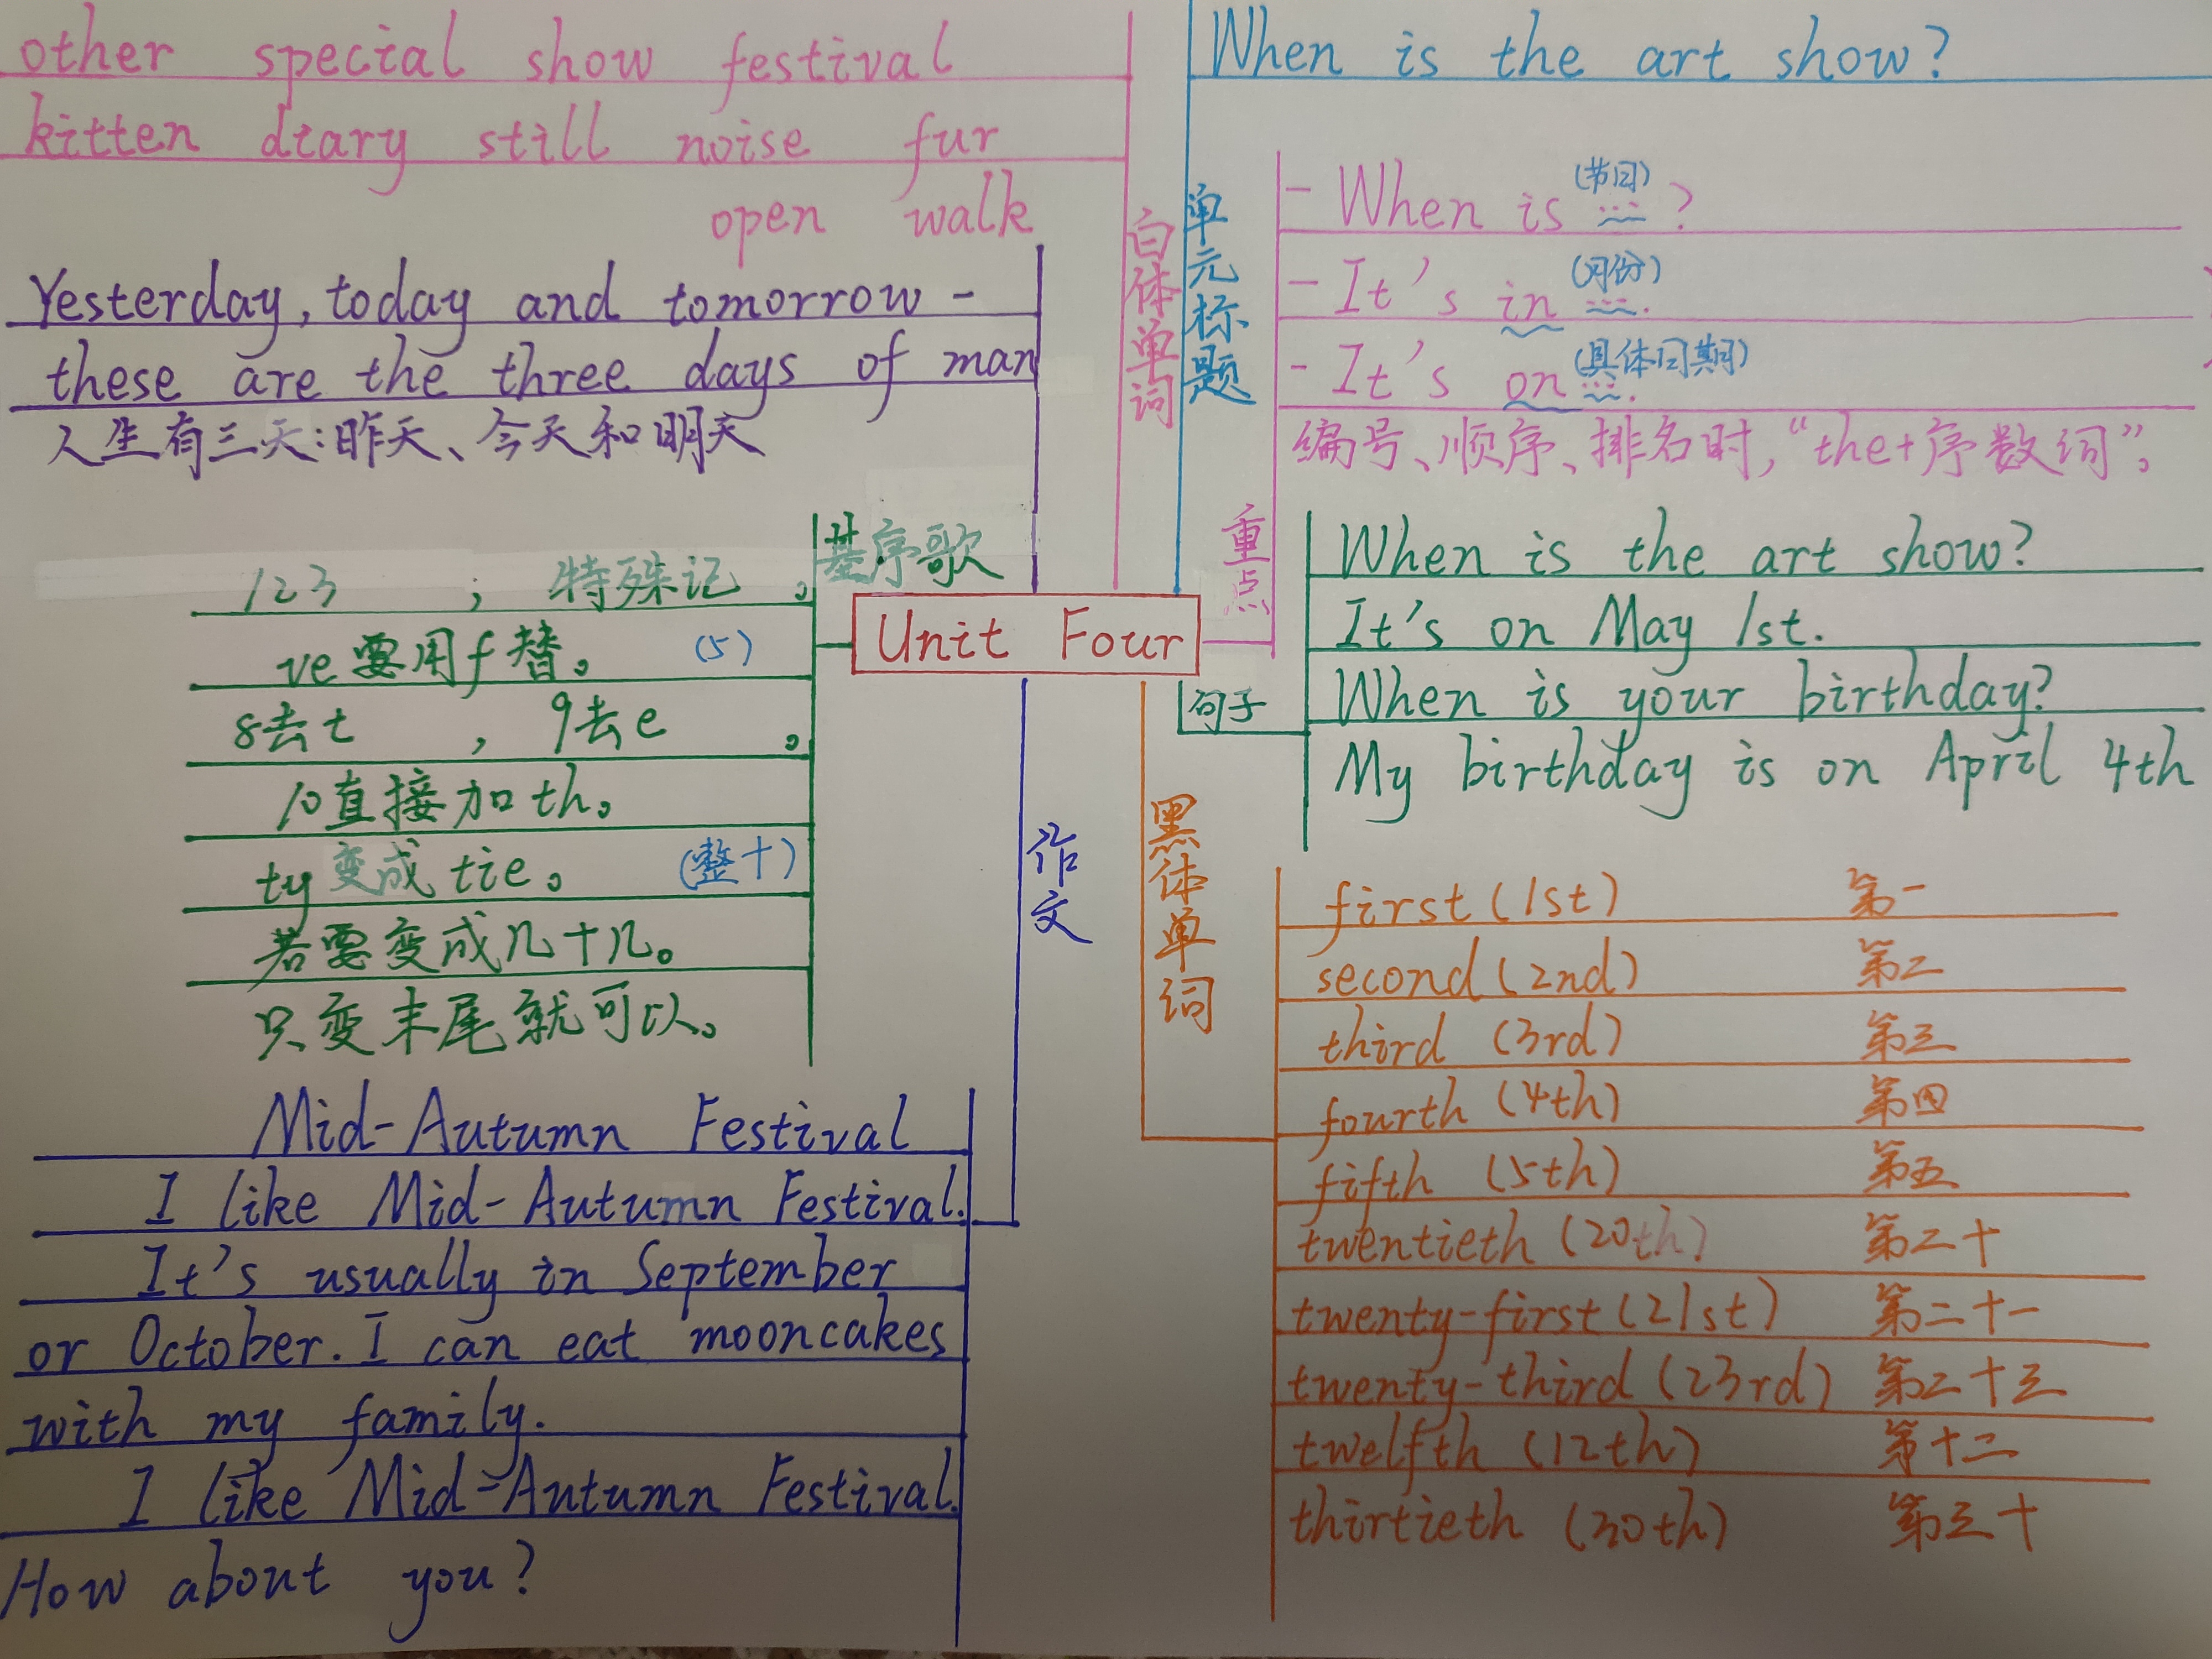 other special show festival
kitten diary still noise fur
open walk
白体单词
Yesterday, today and tomorrow -
these are the three days of man
人生有三天:昨天、今天和明天
基序歌
123 ; 特殊记。
ve要用f替。 (5)
8去t , 9去e 。
10直接加th。
ty变成tie。 (整十)
若要变成几十几。
只变末尾就可以。
Unit Four
作文
Mid-Autumn Festival
I like Mid-Autumn Festival.
It's usually in September
or October. I can eat mooncakes
with my family.
I like Mid-Autumn Festival.
How about you?
When is the art show?
单元标题
重点
- When is (节日) ... ?
- It's in (月份) ....
- It's on (具体日期) ....
编号、顺序、排名时,“the+序数词”。
句子
When is the art show?
It's on May 1st.
When is your birthday?
My birthday is on April 4th
黑体单词
first (1st) 第一
second (2nd) 第二
third (3rd) 第三
fourth (4th) 第四
fifth (5th) 第五
twentieth (20th) 第二十
twenty-first (21st) 第二十一
twenty-third (23rd) 第二十三
twelfth (12th) 第十二
thirtieth (30th) 第三十